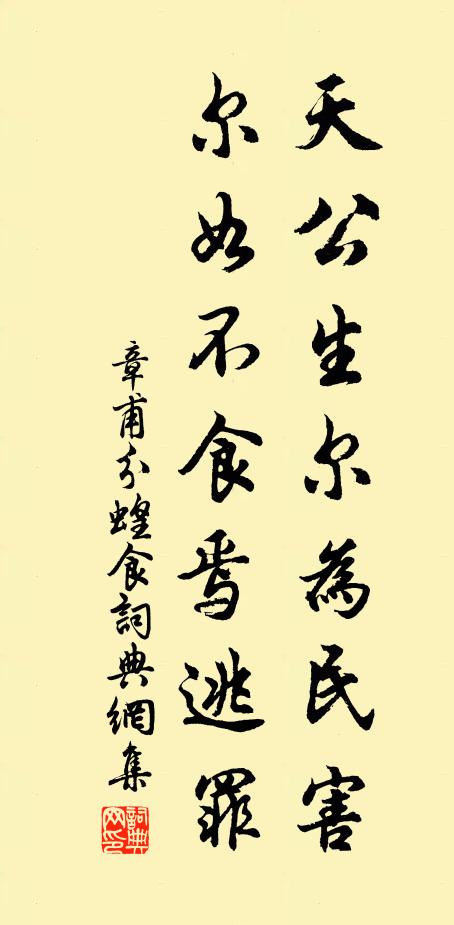 天公生尔為民害
尔如不食焉逃罪
章甫分蝗食詞典網集
詞典網印